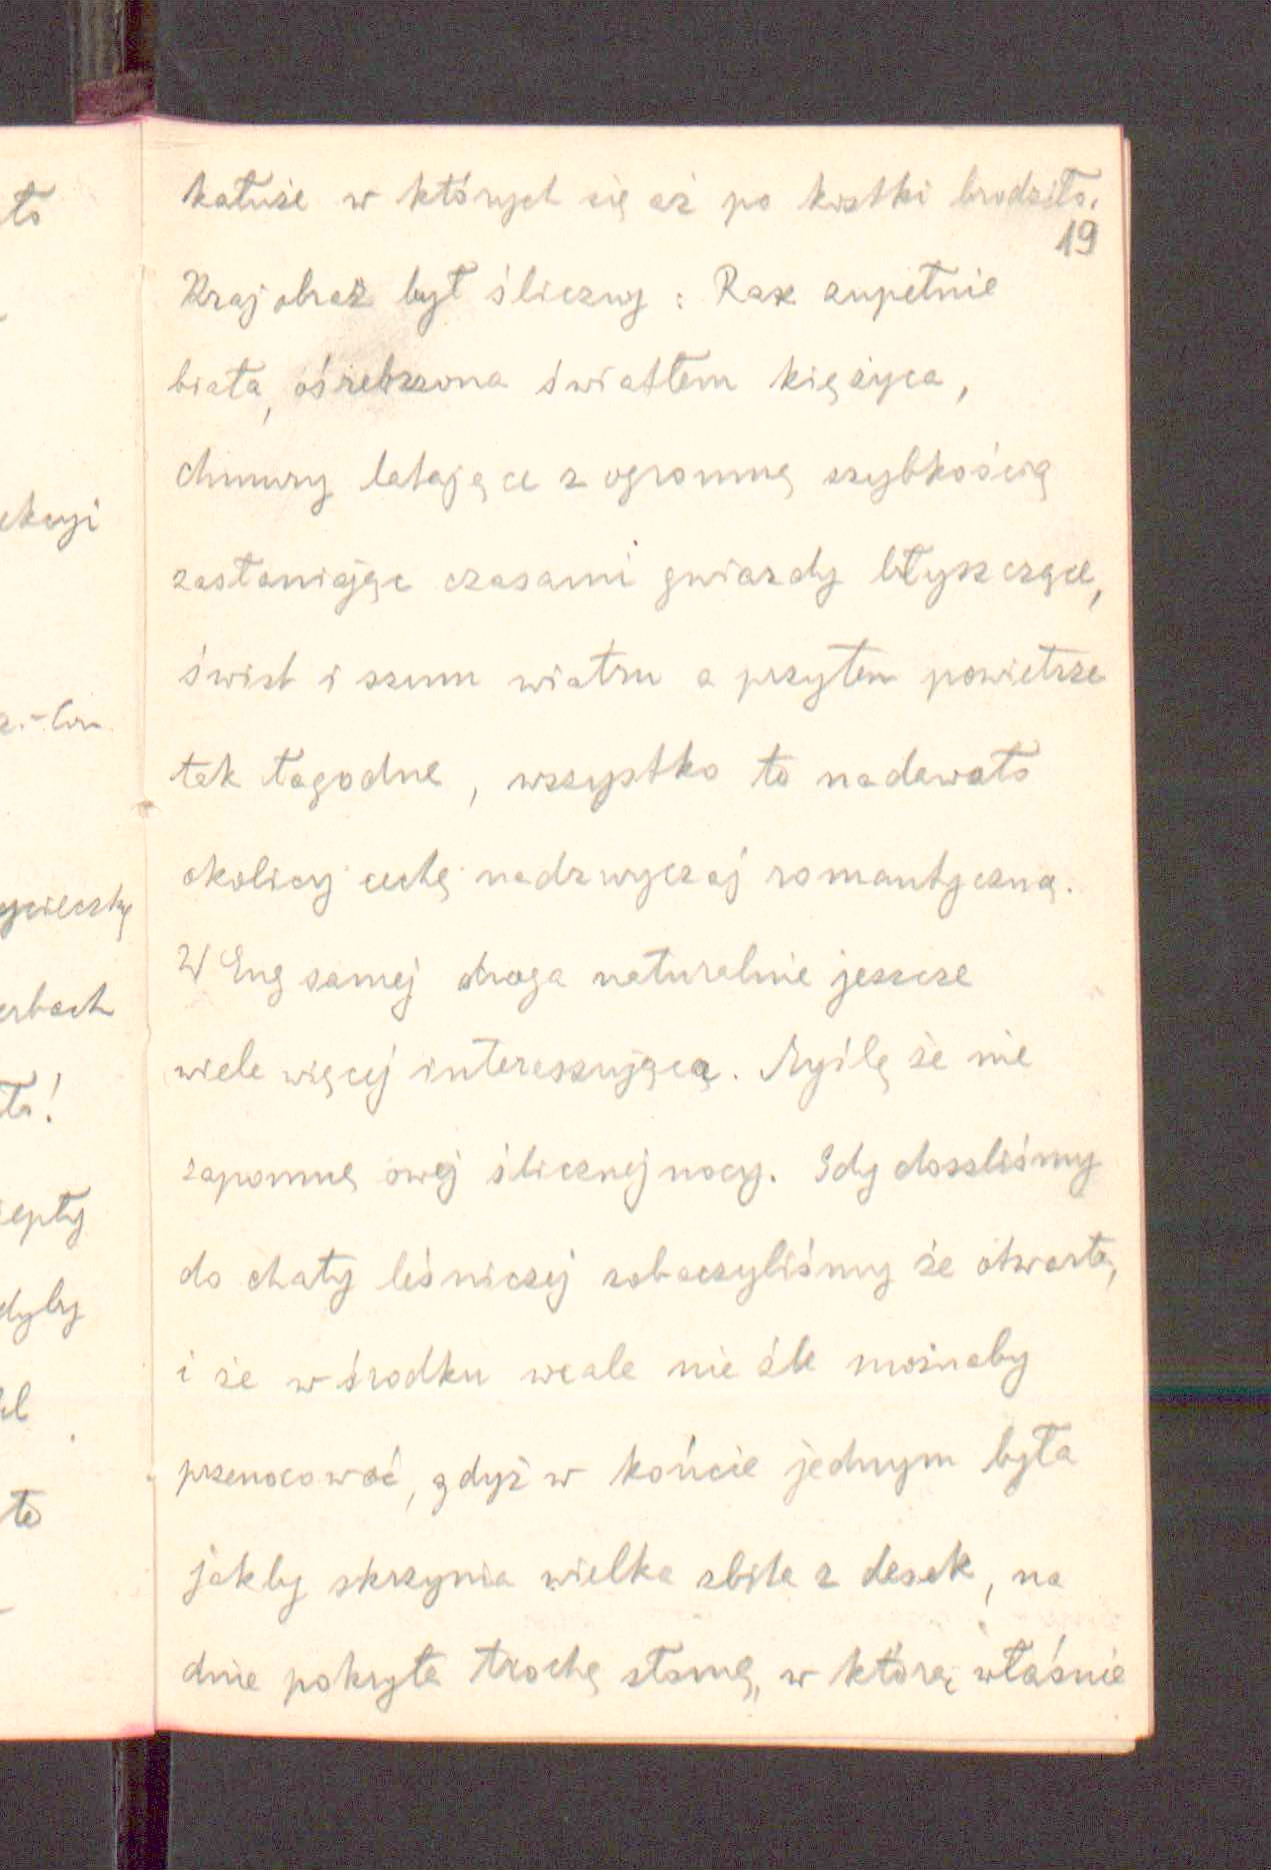 kałuże w których się aż po kostki brodziło.
19
Krajobraz był śliczny : Rax zupełnie
biała, ośrebrzona światłem księżyca,
chmury latające z ogromną szybkością
zasłaniając czasami gwiazdy błyszczące,
świst i szum wiatru a przytem powietrze
tak łagodne, wszystko to nadawało
okolicy cechę nadzwyczaj romantyczną.
W Eng samej droga naturalnie jeszcze
wiele więcej interessującą. Myślę że nie
zapomnę owej ślicznej nocy. Gdy doszliśmy
do chaty leśniczej zobaczyliśmy że otwarta,
i że w środku wcale nie źle możnaby
przenocować, gdyż w końcie jednym była
jakby skrzynia wielka zbita z desek, na
dnie pokryta trochą słomą, w którą właśnie